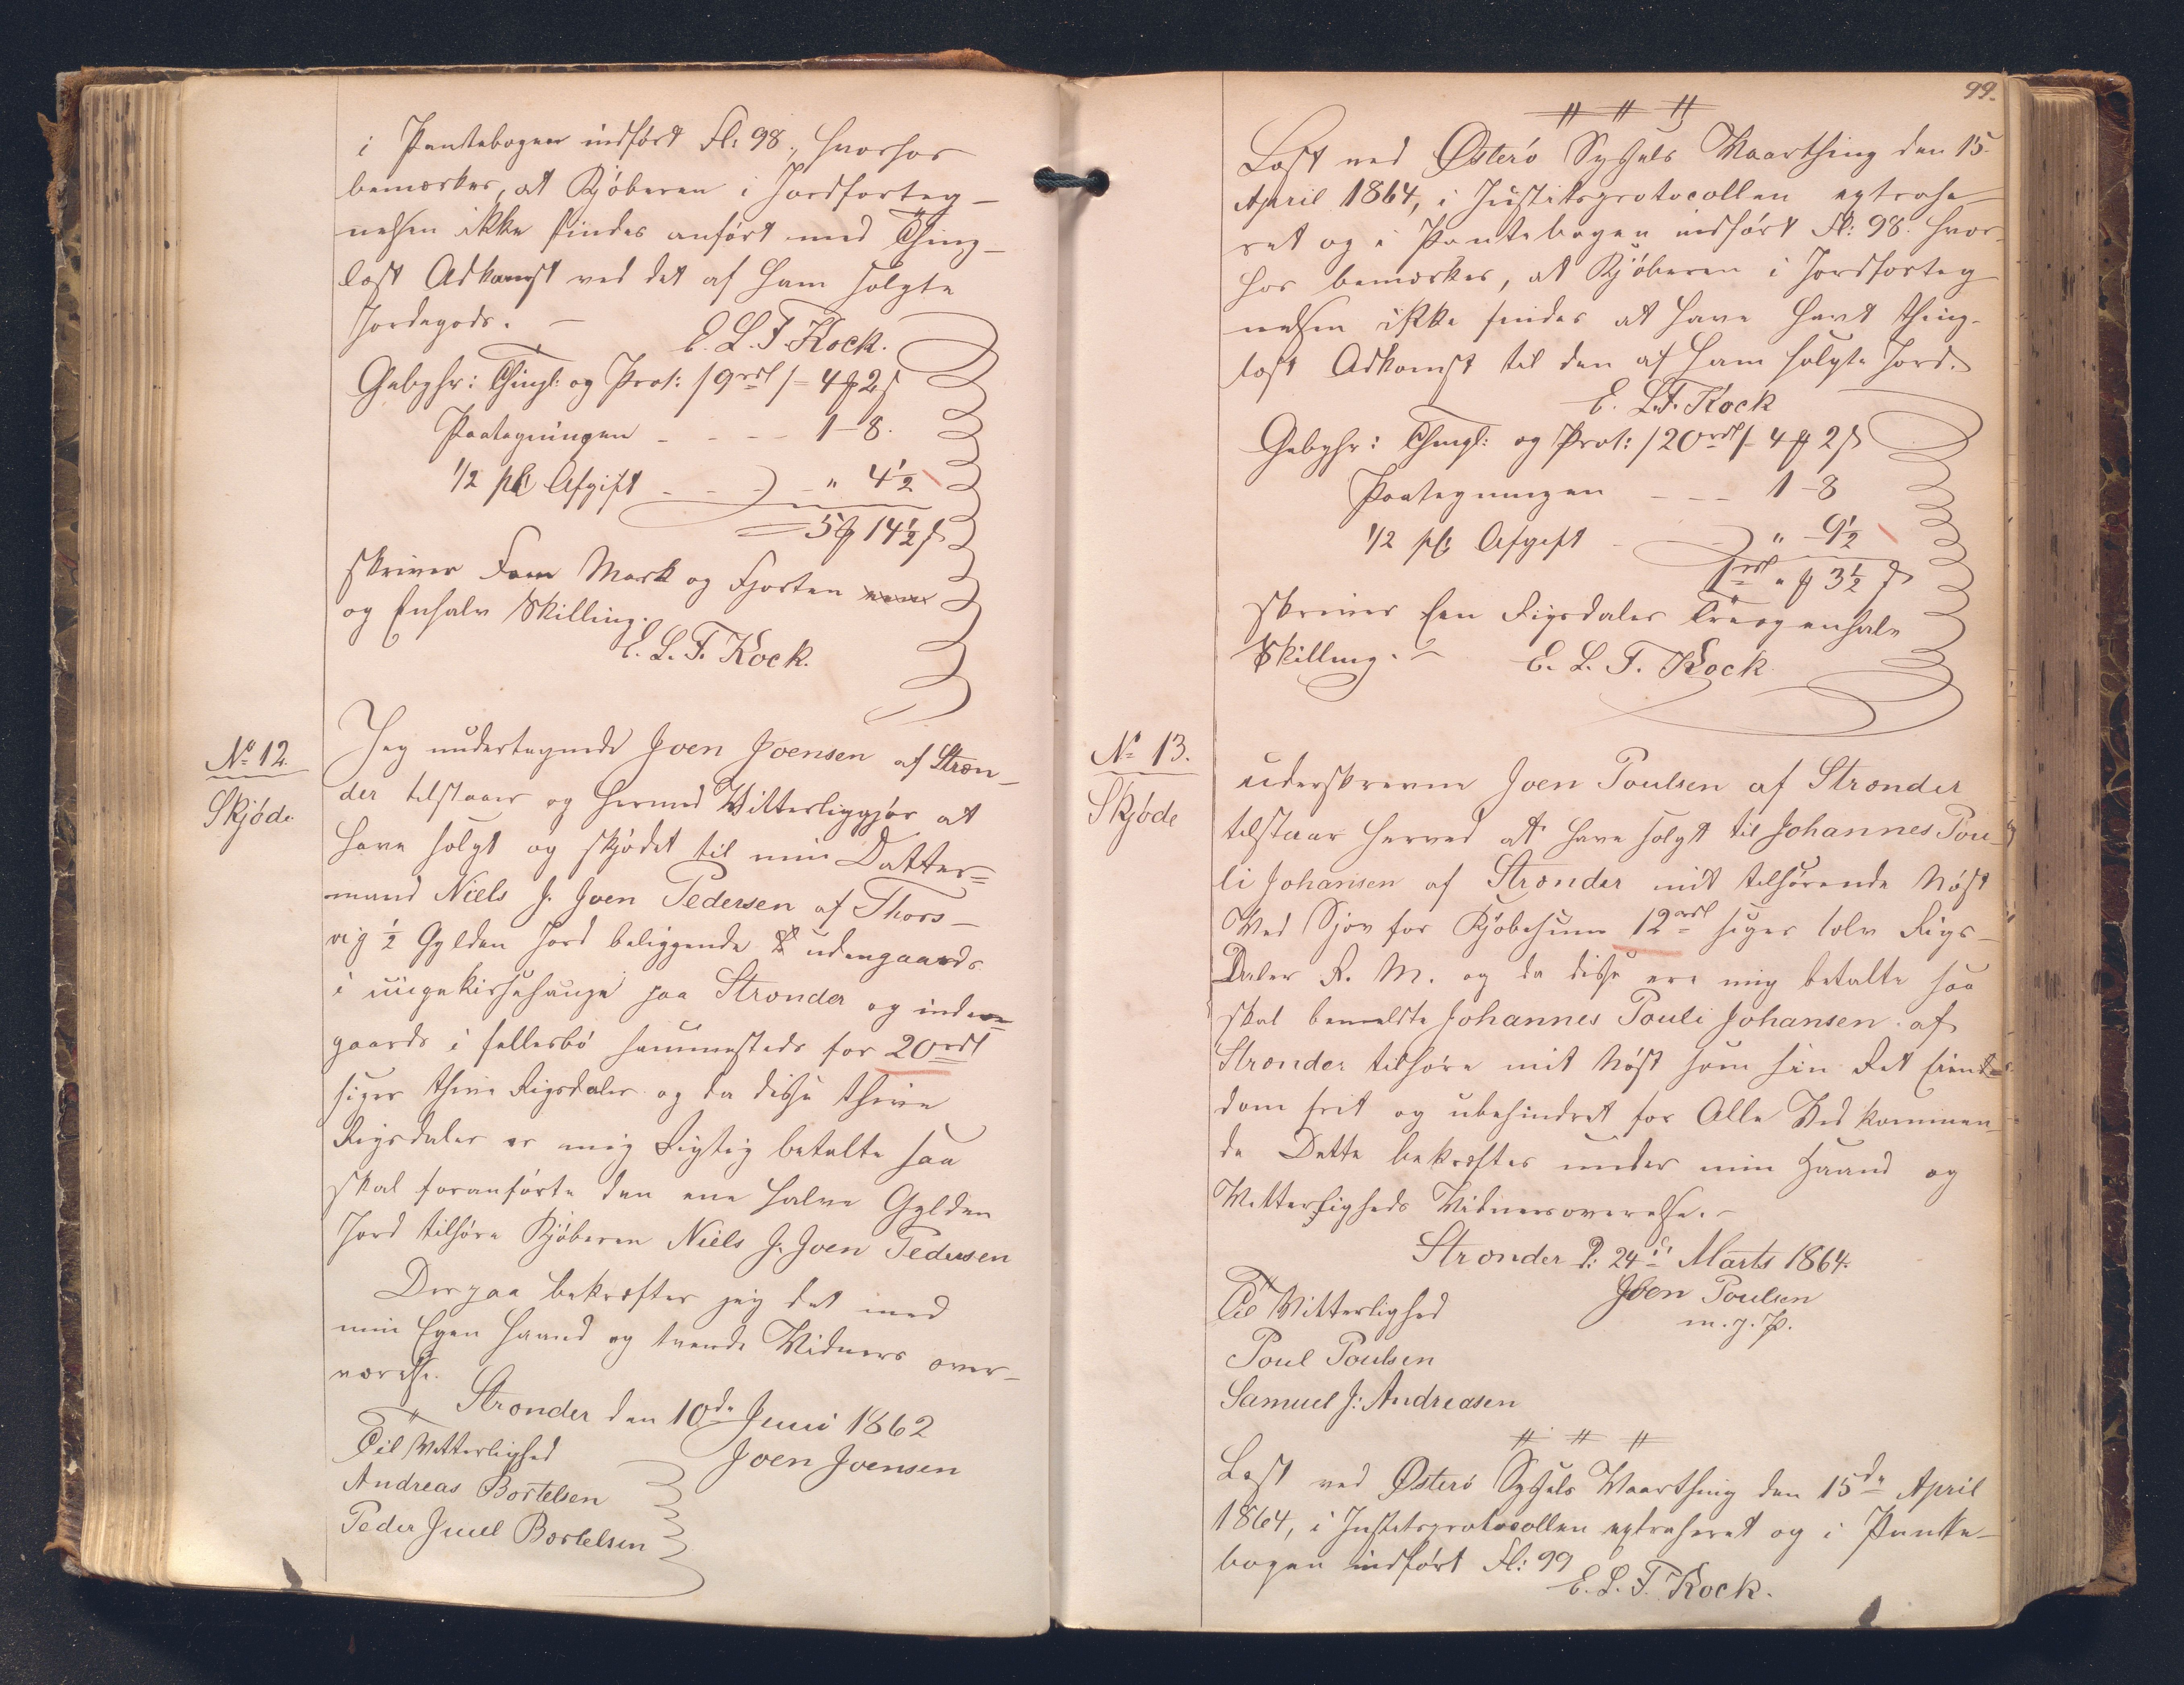 i Pantebogen indført Fl: 98., hvorhos
bemærkes, at Kjøberen i Jordforteg-
nelsen ikke findes anført med Thing-
læst Adkomst ved det af ham solgte
Jordegods. —
E. L. T. Kock.
Gebyhr: Thingl: og Prot: /9rdl/ = 4 ℳ 2 ß
Paategningen - - - - 1-8.
1/2 pCt Afgift - - - " 4½
5 ℳ 14½ ß
skriver Fem Mark og Fjorten
og Enhalv Skilling.
E. L. T. Kock.
No 12.
Skjøde
Jeg undertegnede Joen Joensen af Stræn-
der tilstaaer og hermed Vitterliggjør at
have solgt og skjødet til min Datter=
mand Niels J. Joen Pedersen af Thors-
vig ½ Gylden Jord beliggende udengaards
i paa Strænder og inden-
gaards i fællesbø sammesteds for 20rdl
siger thive Rigsdaler og da disse thive
Rigsdaler er mig Rigtig betalte saa
skal foranførte den ene halve Gylden
Jord tilhøre Kjøberen Niels J. Joen Pedersen
Derpaa bekræfter jeg det med
min Egen Haand og tvende Vidners over-
værelse.
Strænder den 10de Juni 1862
Til Vitterlighed
Joen Joensen
Andreas Bertelsen
Peder Juul Bertelsen
99.
# # #
Læst ved Østerø Syssels Vaarthing den 15.
April 1864, i Justitsprotocollen extrahe-
ret og i Pantebogen indført Fl: 98. hvor-
hos bemærkes, at Kjøberen i Jordforteg
nelsen ikke findes at have havt thing-
læst Adkomst til den af ham solgte Jord.
E. L. T. Kock
Gebyhr: Thingl: og Prot: /20rdl/ 4 ℳ 2 ß
Paategningen - - - 1-8
1/2 pCt Afgift - - " -9½
1rdl " ℳ 3½ ß
skriver Een Rigsdaler Treogenhalv
Skilling. —
E. L. T. Kock
No 13.
Skjøde
underskrevne Joen Poulsen af Strænder
tilstaar herved at have solgt til Johannes Pou-
li Johansen af Strænder mit tilhørende Nøst
Ved Sjøv for Kjøbesum 12rdl siger tolv Rigs-
Daler R. M. og da disse ere mig betalte saa
skal bemeldte Johannes Pouli Johansen af
Strænder tilhøre mit Nøst som sin Ret Eien-
dom frit og ubehindret for Alle Ved kommen-
de Dette bekræftes under min Haand og
Vitterligheds Vidners overelse. -
Strænder D: 24de Marts 1864.
Til Vitterlighed
Joen Poulsen
m. f. P.
Poul Poulsen
Samuel J: Andreasen
# # #
Læst ved Østerø Syssels Vaarthing den 15de April
1864, i Justitsprotocollen extraheret og i Pante-
bogen indført Fl: 99
E. L. T. Kock.